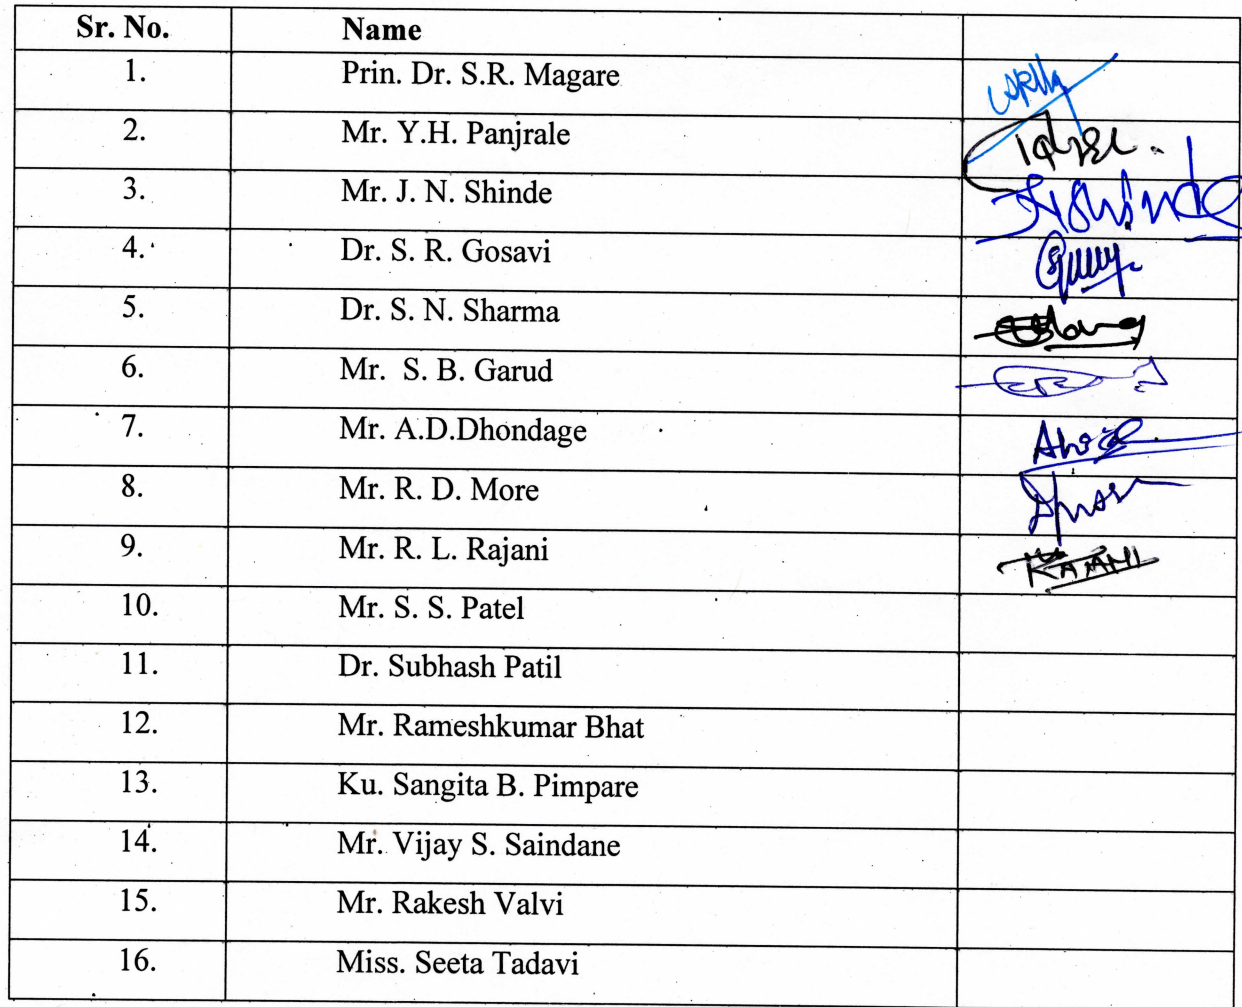 Sr. No. Name
1. Prin. Dr. S.R. Magare
2. Mr. Y.H. Panjrale
3. Mr. J. N. Shinde
4. Dr. S. R. Gosavi
5. Dr. S. N. Sharma
6. Mr. S. B. Garud
7. Mr. A.D.Dhondage
8. Mr. R. D. More
9. Mr. R. L. Rajani RAJANI
10. Mr. S. S. Patel
11. Dr. Subhash Patil
12. Mr. Rameshkumar Bhat
13. Ku. Sangita B. Pimpare
14. Mr. Vijay S. Saindane
15. Mr. Rakesh Valvi
16. Miss. Seeta Tadavi